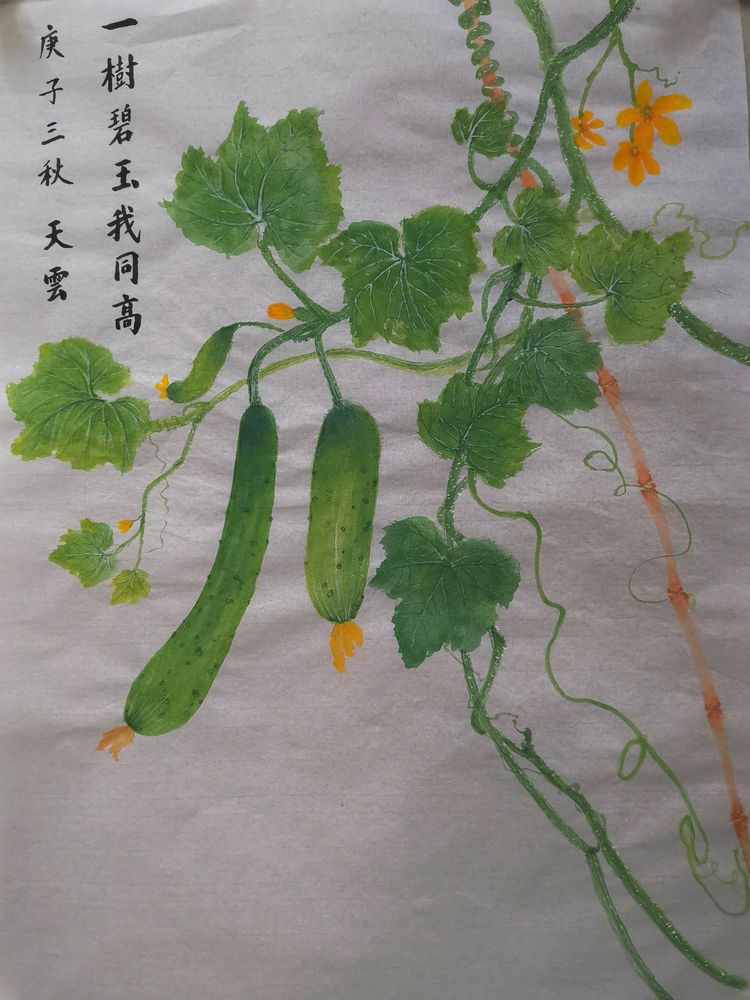 一樹碧玉我同高
庚子三秋 天雲